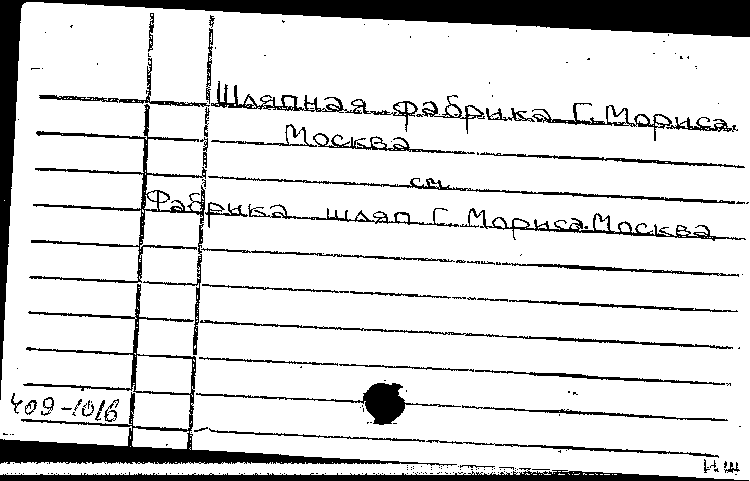 Шляпная фабрика Г. Мориса.
Москва
см
Фабрика шляп Г. Мориса. Москва.
409-1016